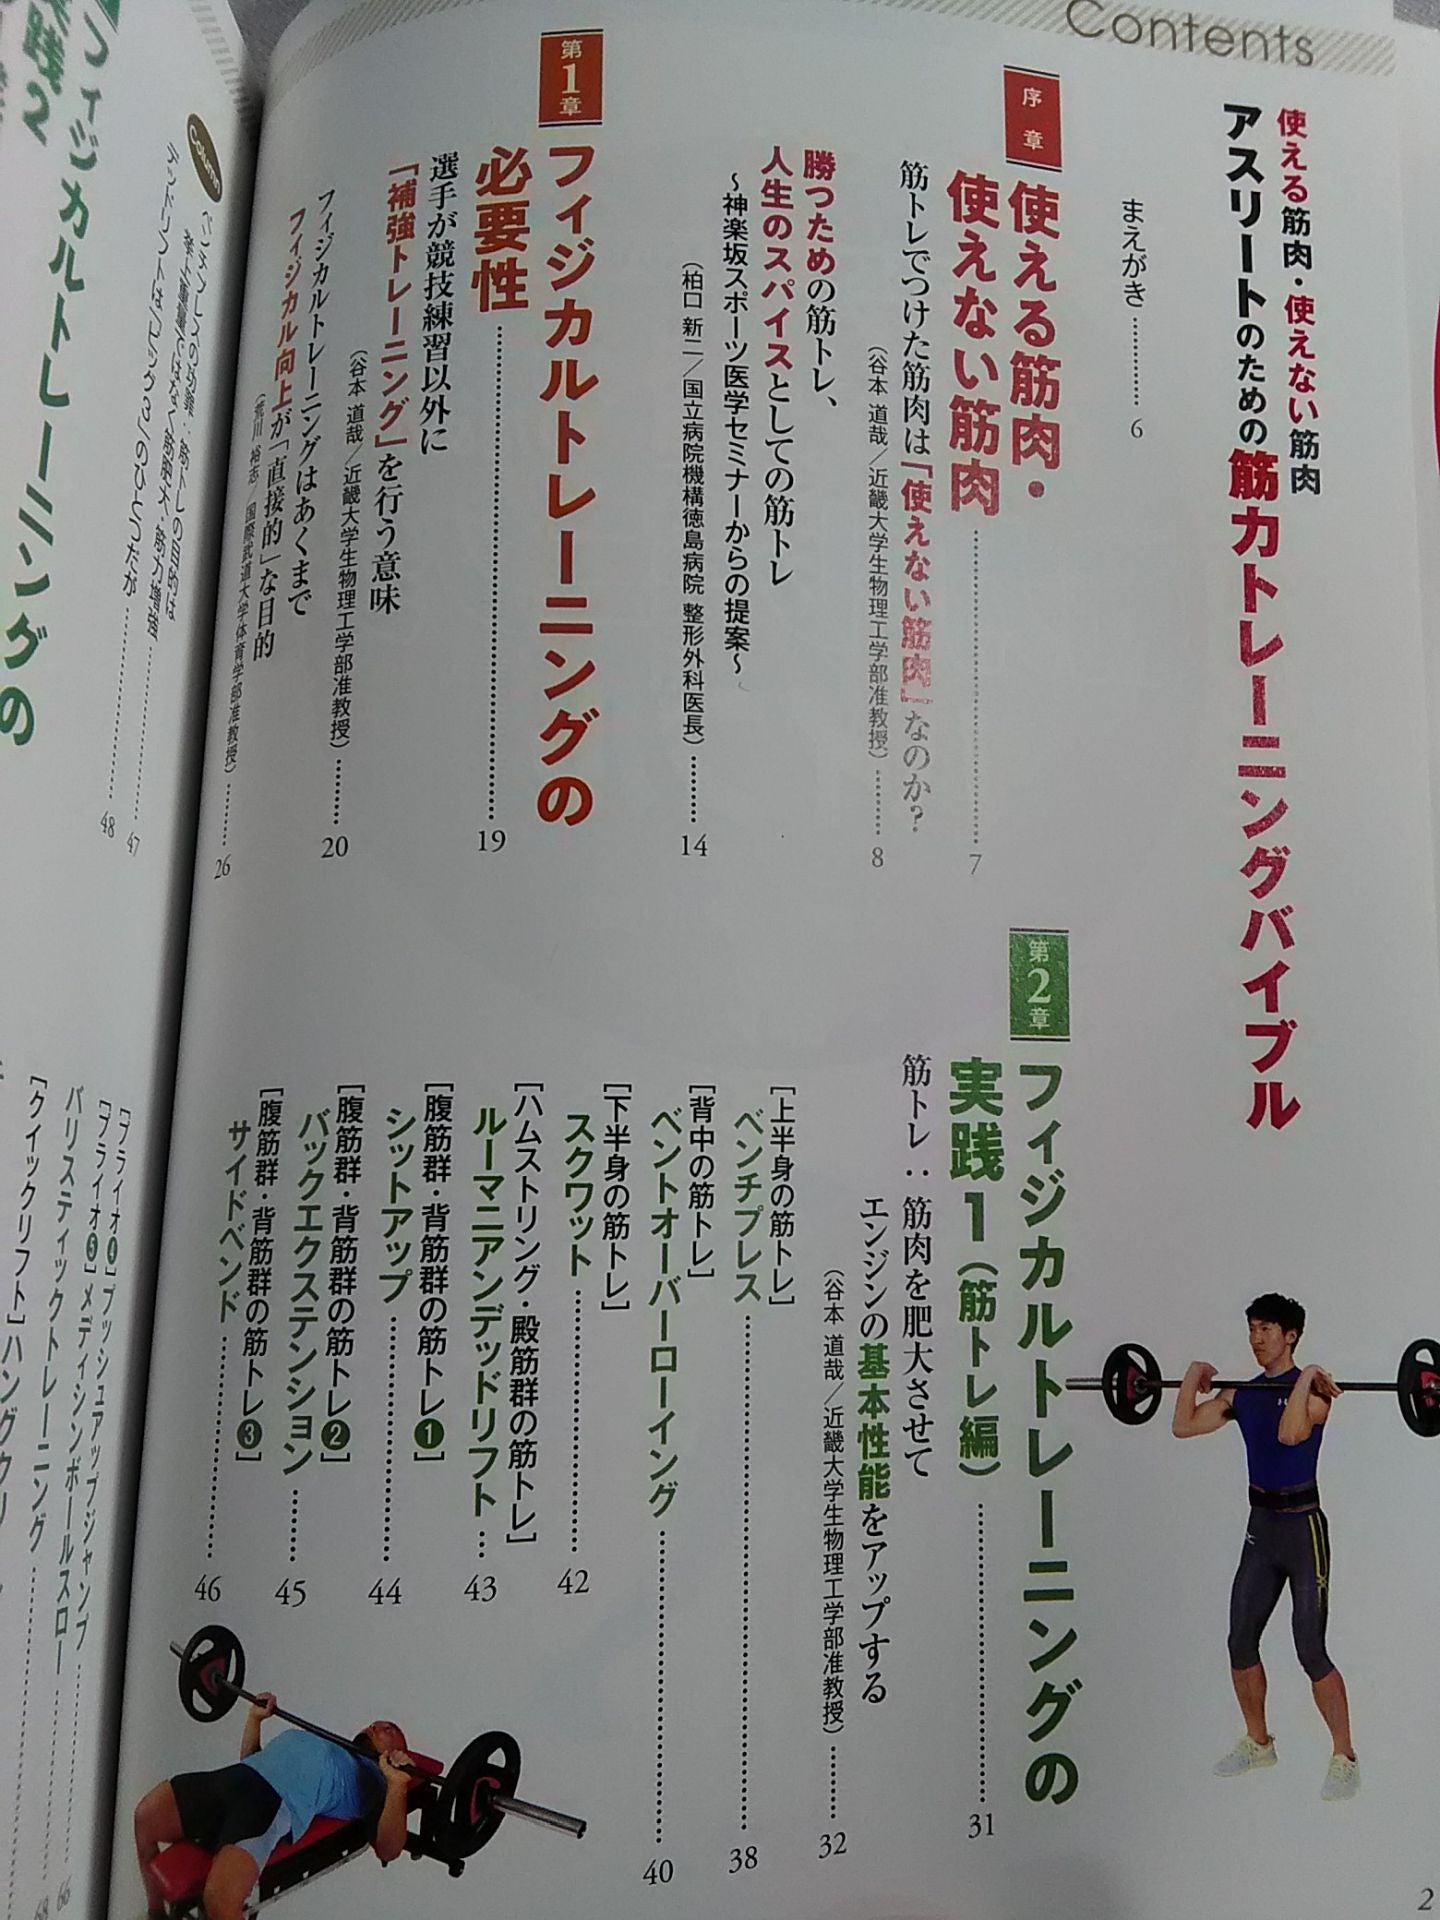 Contents
使える筋肉・使えない筋肉
アスリートのための筋力トレーニングバイブル
まえがき…………6
序章
使える筋肉・
使えない筋肉……………………7
筋トレでつけた筋肉は「使えない筋肉」なのか?
（谷本 道哉／近畿大学生物理工学部准教授）………8
勝つための筋トレ、
人生のスパイスとしての筋トレ
～神楽坂スポーツ医学セミナーからの提案～
（柏口 新二／国立病院機構徳島病院 整形外科医長）………14
第1章
フィジカルトレーニングの
必要性……………………19
選手が競技練習以外に
「補強トレーニング」を行う意味
（谷本 道哉／近畿大学生物理工学部准教授）………20
フィジカルトレーニングはあくまで
フィジカル向上が「直接的」な目的
（荒川 裕志／国際武道大学体育学部准教授）………26
第2章
フィジカルトレーニングの
実践1（筋トレ編）……………………31
筋トレ：筋肉を肥大させて
エンジンの基本性能をアップする
（谷本 道哉／近畿大学生物理工学部准教授）………32
［上半身の筋トレ］
ベンチプレス……………………38
［背中の筋トレ］
ベントオーバーローイング……………………40
［下半身の筋トレ］
スクワット……………………42
［ハムストリング・殿筋群の筋トレ］
ルーマニアンデッドリフト…43
［腹筋群・背筋群の筋トレ❶］
シットアップ……………………44
［腹筋群・背筋群の筋トレ❷］
バックエクステンション……45
［腹筋群・背筋群の筋トレ❸］
サイドベンド……………………46
2
Column
ベンチプレスの功罪：筋トレの目的は
挙上重量ではなく筋肥大・筋力増強……………47
デッドリフトは「ビッグ3」のひとつだが……………48
フィジカルトレーニングの
実践2
［プライオ❹］プッシュアップジャンプ……………66
［プライオ❺］メディシンボールスロー……………68
バリスティックトレーニング
［クイックリフト］ハングクリ